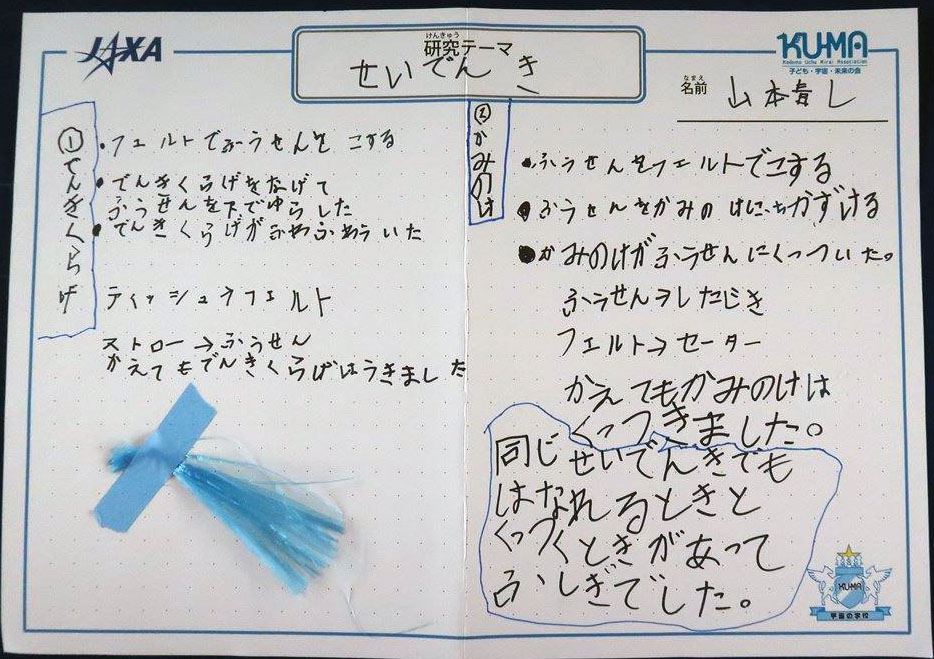 JAXA
けんきゅう
研究テーマ
せいでんき
KU-MA
Kodomo Uchu Mirai Association
子ども・宇宙・未来の会
なまえ
名前
山本青し
①でんきくらげ
・フェルトでふうせんをこする
・でんきくらげをなげて
ふうせんを下でゆらした
・でんきくらげがふわふわういた
ティッシュ→フェルト
ストロー→ふうせん
かえてもでんきくらげはうきました
②かみのけ
・ふうせんをフェルトでこする
・ふうせんをかみのけにちかずける
・かみのけがふうせんにくっついた。
ふうせん→したじき
フェルト→セーター
かえてもかみのけは
くっつきました。
同じせいでんきでも
はなれるときと
くっつくときがあって
ふしぎでした。
KU-MA
宇宙の学校